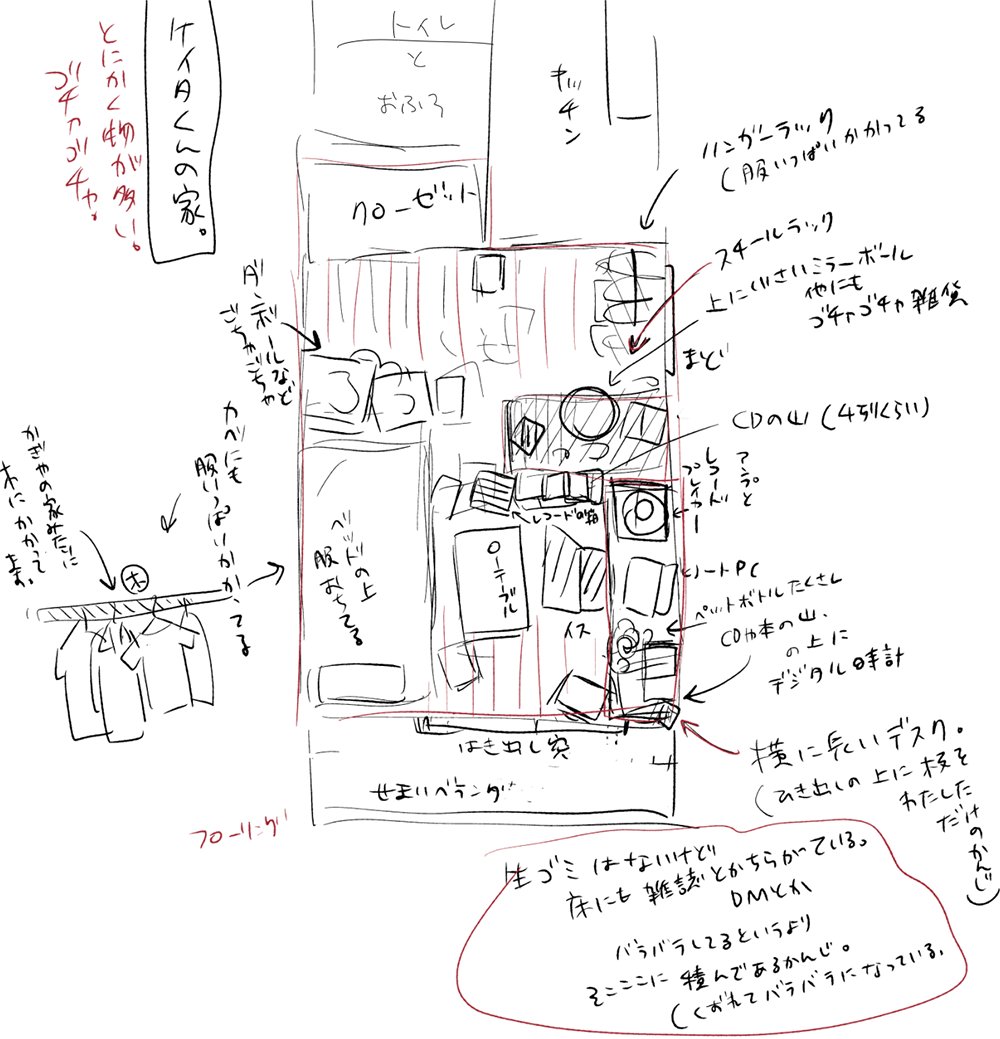 ケイタくんの家。
とにかく物が多い!
ゴチャゴチャ。
トイレ
と
おふろ
キッチン
クローゼット
ハンガーラック
(服いっぱいかかってる
スチールラック
上に小さいミラーボール
他にも
ゴチャゴチャ雑貨
まど
ダンボールなど
ごちゃごちゃ
CDの山(4列くらい)
アンプと
レコード
プレイヤー
レコードの箱
かべにも
服いっぱいかかってる
かぎやの家みたいに
木にかかってます。
木
ベッドの上
服おちてる
ローテーブル
イス
ノートPC
ペットボトルたくさん
CDや本の山、
の上に
デジタル時計
はき出し窓
せまいベランダ
横に長いデスク。
(ひき出しの上に板を
わたした
だけのかんじ)
フローリング
生ゴミはないけど
床にも雑誌とかちらかっている。
DMとか
バラバラしてるというより
そこここに積んであるかんじ。
(くずれてバラバラになっている。